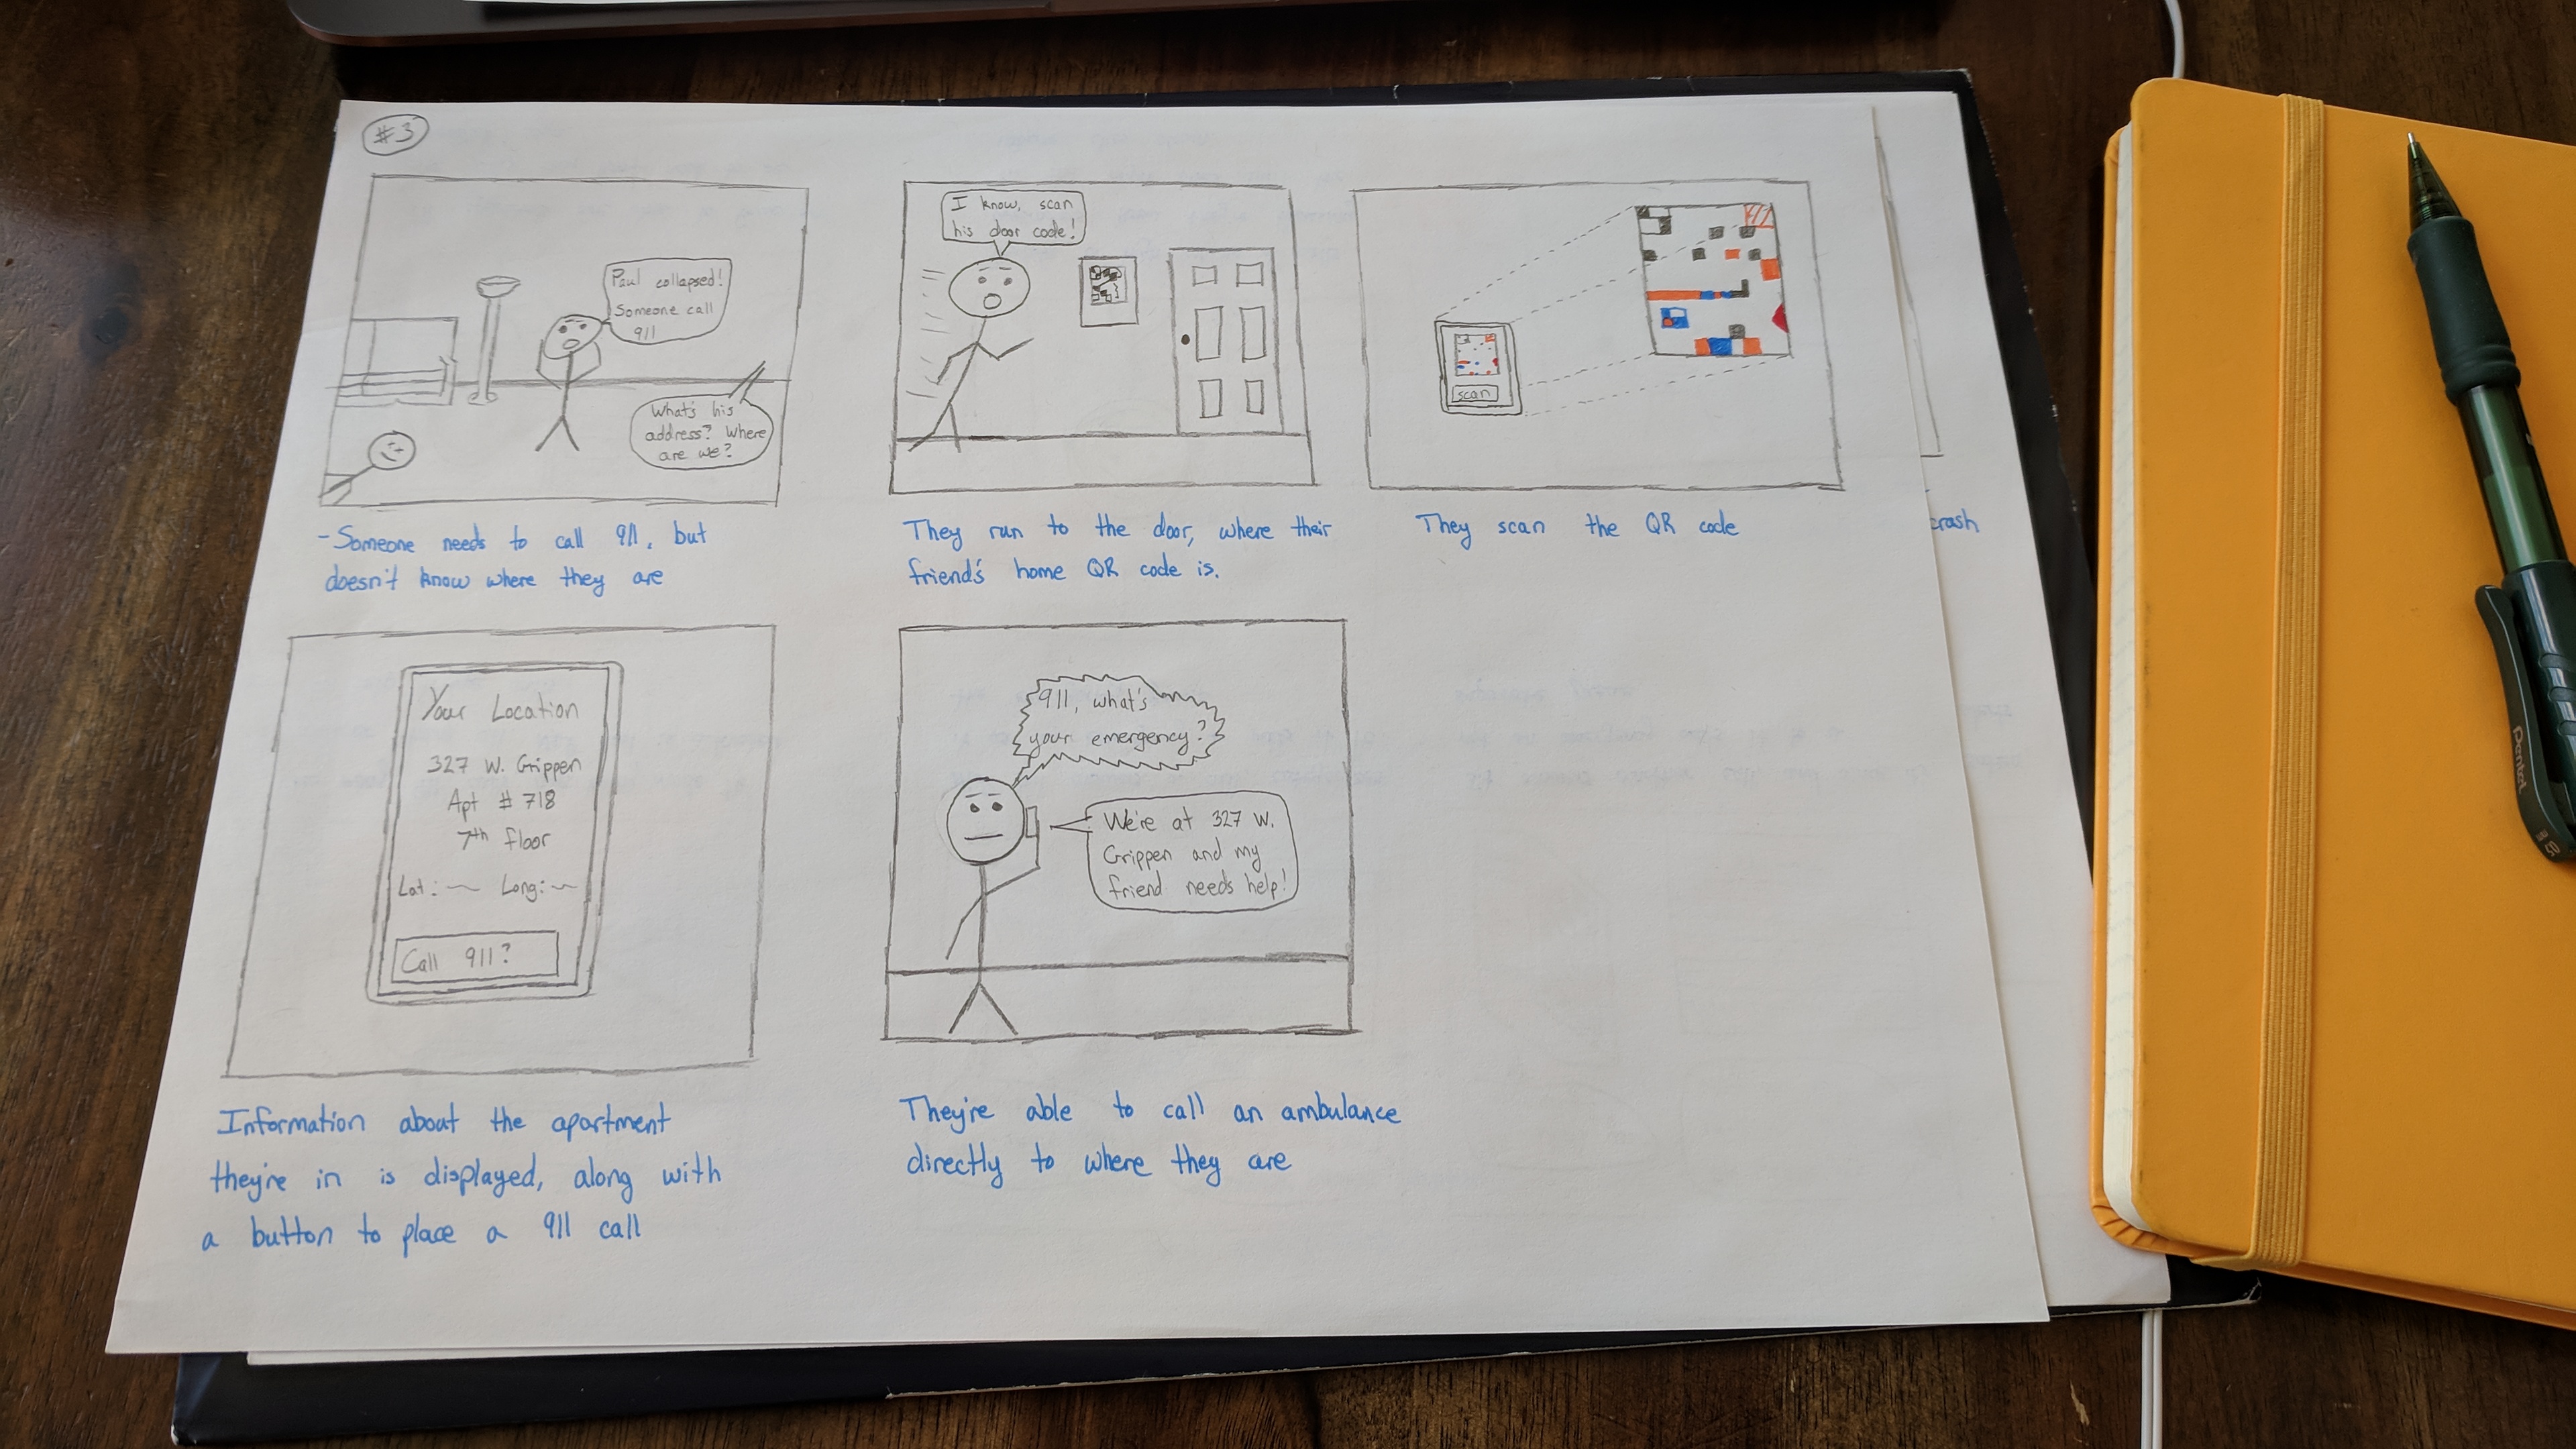 #3
Paul collapsed!
Someone call
911
What's his
address? Where
are we?
- Someone needs to call 911, but
doesn't know where they are
I know, scan
his door code!
They run to the door, where their
friend's home QR code is.
scan
They scan the QR code
crash
Your Location
327 W. Grippen
Apt # 718
7th floor
Lat: Long:
Call 911?
Information about the apartment
they're in is displayed, along with
a button to place a 911 call
911, what's
your emergency?
We're at 327 W.
Grippen and my
friend needs help!
They're able to call an ambulance
directly to where they are
Pentel